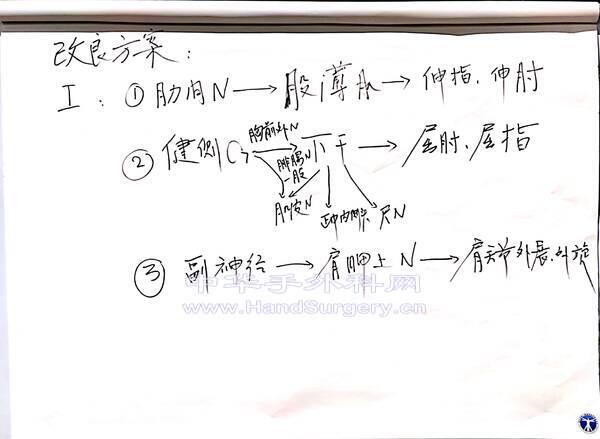 改良方案：
I：①肋间N→股薄肌→伸指、伸肘
②健侧C7 胸前外N→下干→屈肘、屈指
腓肠N
一股
肌皮N 正中内侧 尺N
③副神经→肩胛上N→肩关节外展、外旋
中华手外科网
www.HandSurgery.cn